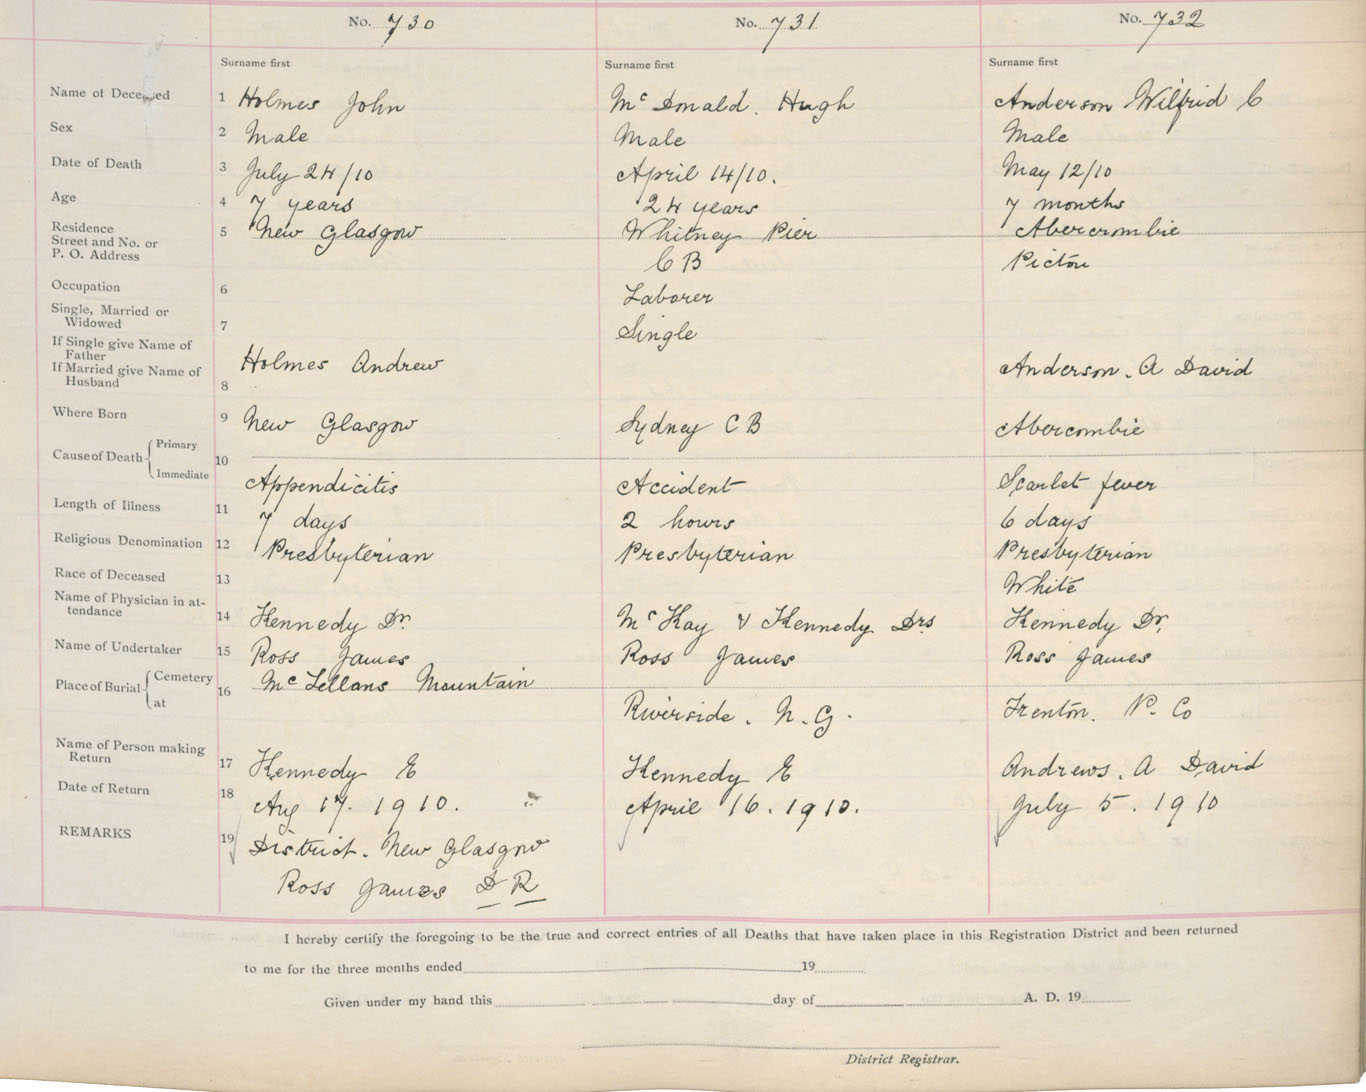 No. 730 No. 731 No. 732
Surname first Surname first Surname first
Name of Deceased 1 Holmes John McDonald. Hugh Anderson Wilfrid C
Sex 2 Male Male Male
Date of Death 3 July 24/10 April 14/10. May 12/10
Age 4 7 years 24 years 7 months
Residence
Street and No. or
P. O. Address
5 New Glasgow Whitney Pier Abercrombie
C B Pictou
Occupation 6 Laborer
Single, Married or
Widowed
7 Single
If Single give Name of
Father
If Married give Name of
Husband
8 Holmes Andrew Anderson. A David
Where Born 9 New Glasgow Sydney C B Abercombie
Cause of Death Primary
Immediate
10 Appendicitis Accident Scarlet fever
Length of Illness 11 7 days 2 hours 6 days
Religious Denomination 12 Presbyterian Presbyterian Presbyterian
Race of Deceased 13 White
Name of Physician in at-
tendance
14 Kennedy Dr. McKay & Kennedy Drs Kennedy Dr,
Name of Undertaker 15 Ross James Ross James Ross James
Place of Burial Cemetery
at
16 McLellans Mountain Riverside. N. G. Trenton. P. Co
Name of Person making
Return
17 Kennedy E Kennedy E Andrews. A David
Date of Return 18 Aug 17. 1910. April 16. 1910. July 5. 1910
REMARKS 19 District. New Glasgow
Ross James D R
I hereby certify the foregoing to be the true and correct entries of all Deaths that have taken place in this Registration District and been returned
to me for the three months ended 19
Given under my hand this day of A. D. 19
District Registrar.